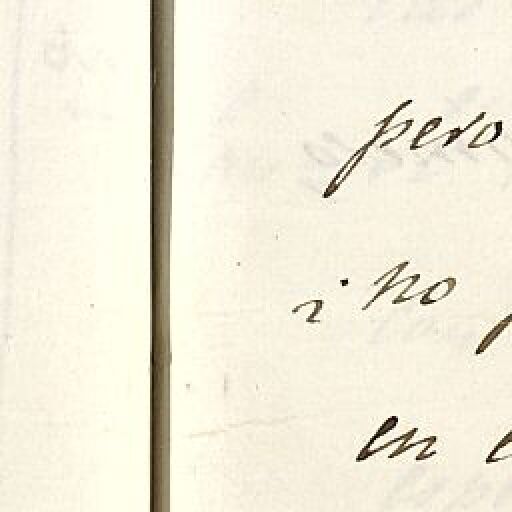 pero
i no
en